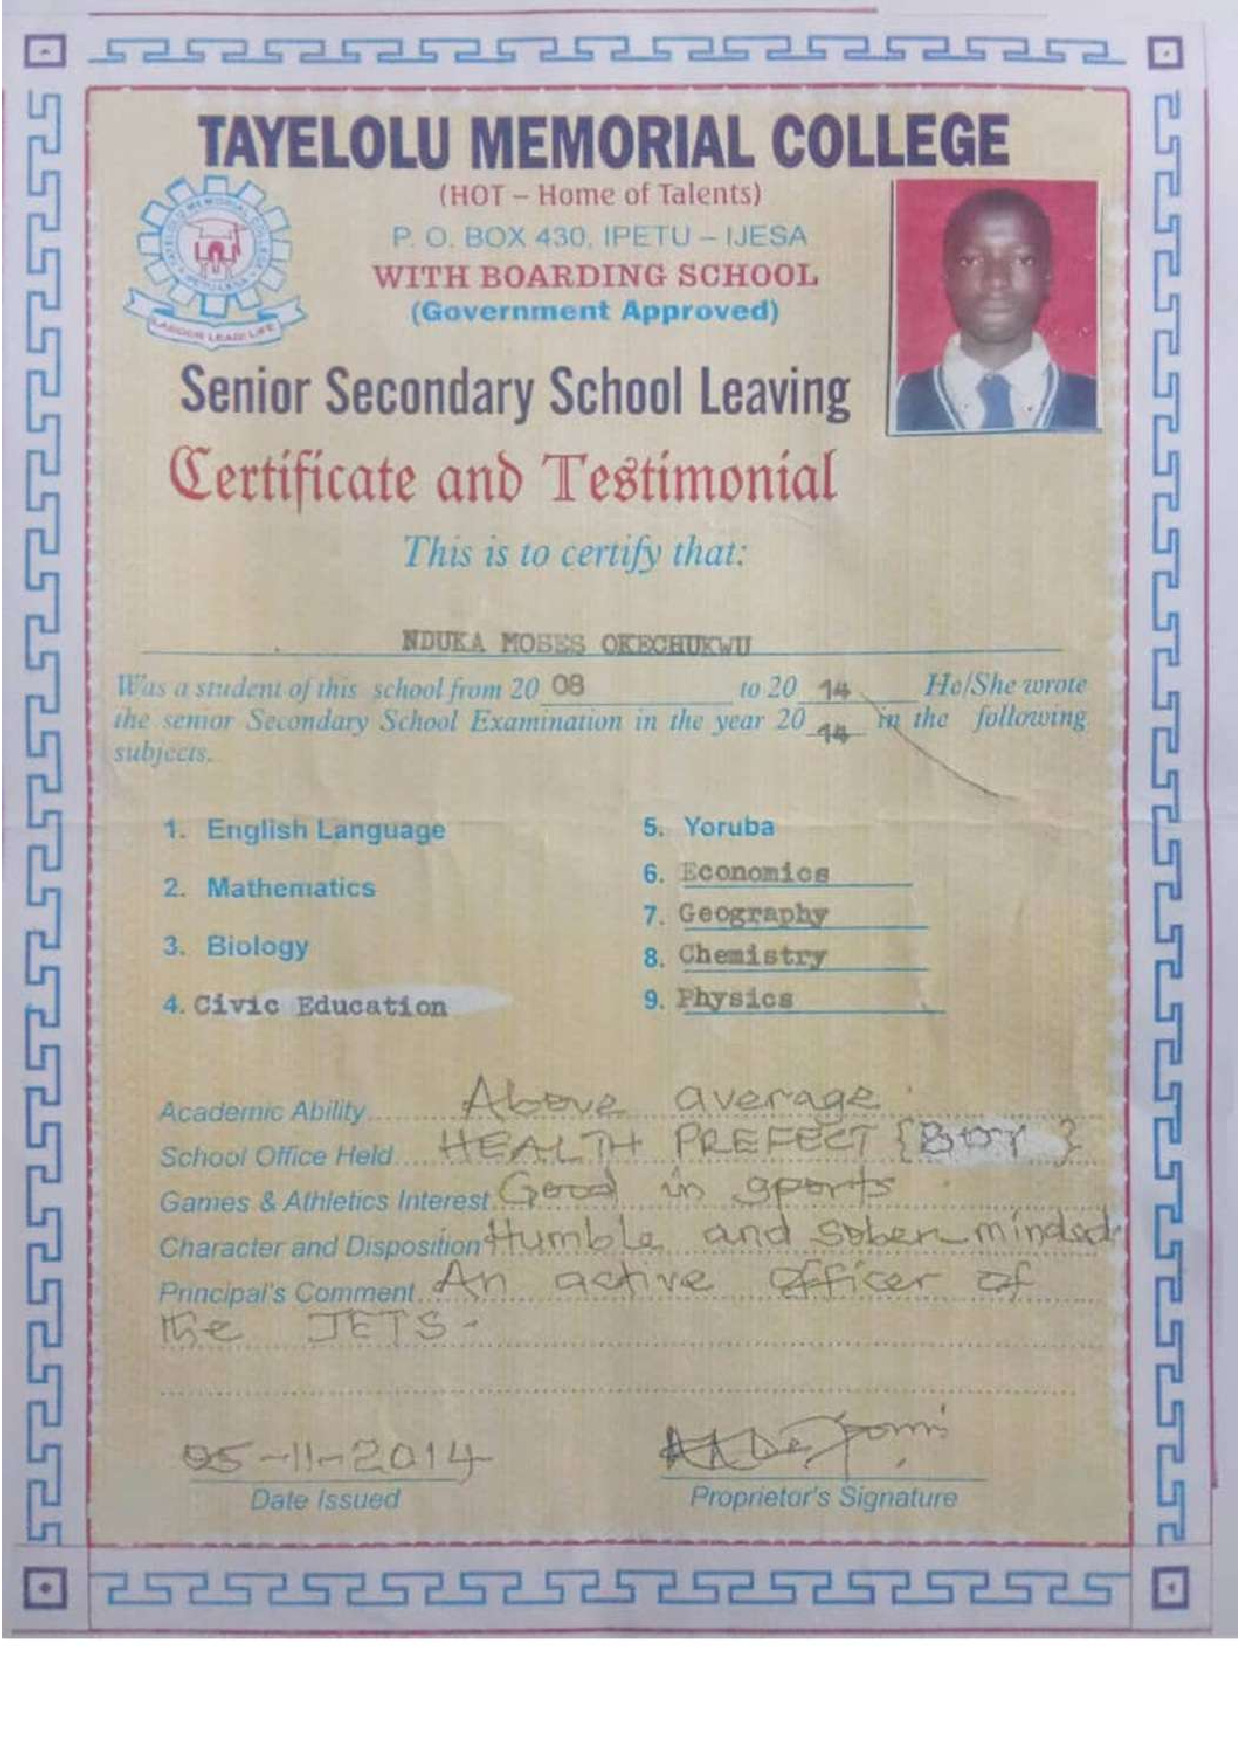 TAYELOLU MEMORIAL COLLEGE
(HOT – Home of Talents)
P. O. BOX 430, IPETU – IJESA
WITH BOARDING SCHOOL
(Government Approved)
TAYELOLU MEMORIAL COLLEGE
LABOUR LEADS LIFE
Senior Secondary School Leaving
Certificate and Testimonial
This is to certify that:
NDUKA MOSES OKECHUKWU
Was a student of this school from 20 08 to 20 14 He/She wrote
the senior Secondary School Examination in the year 20 14 in the following
subjects.
1. English Language
2. Mathematics
3. Biology
4. Civic Education
5. Yoruba
6. Economics
7. Geography
8. Chemistry
9. Physics
Academic Ability Above average
School Office Held HEALTH PREFECT {BOY}
Games & Athletics Interest Good in sports
Character and Disposition Humble and sober minded
Principal's Comment An active officer of
the JETS.
05-11-2014
Date Issued
Proprietor's Signature